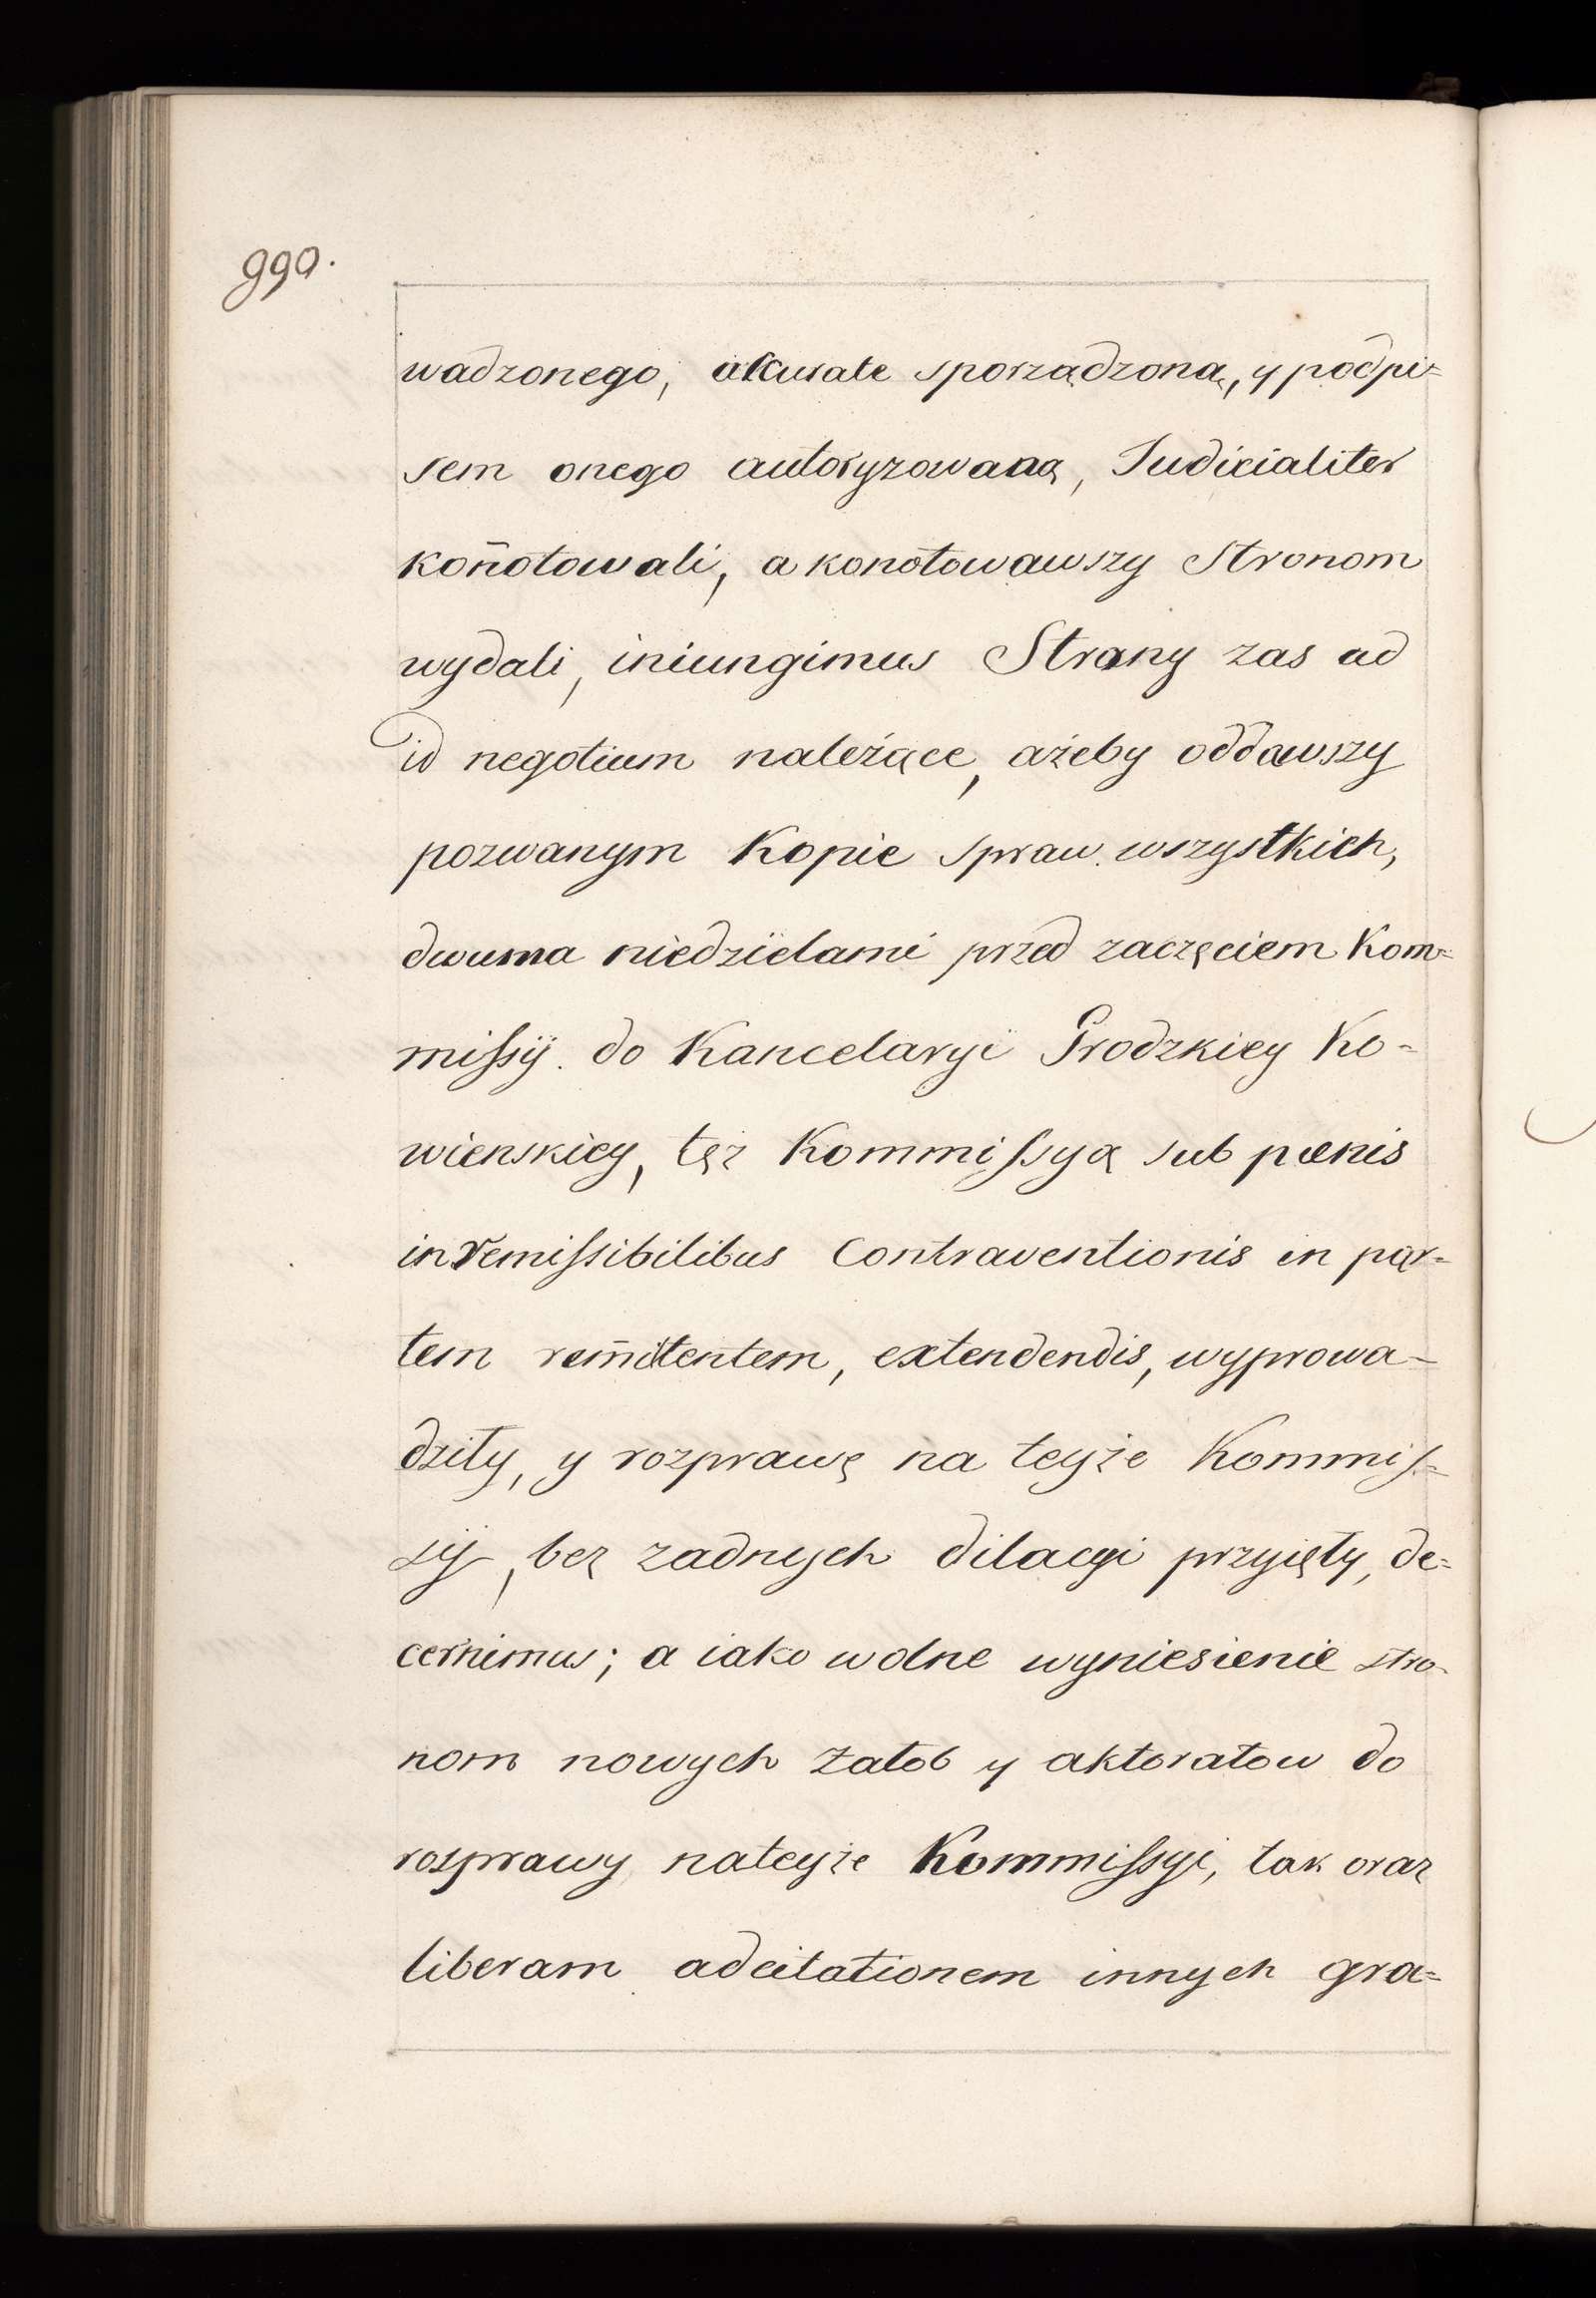 990.
wadzonego, akurate sporządzoną, y podpi=
sem onego autoryzowaną, Judicialiter
kon̄otowali, a konotowawszy Stronom
wydali, iniungimus Strony zas ad
id negotium należące, ażeby oddawszy
pozwanym Kopie spraw wszystkich,
dwuma niedzielami przed zaczęciem Kom=
mifsÿ. do Kancelaryi Grodzkiey Ko=
wienskiey, tęż Kommifsyą sub pœnis
inremifsibilibus Contraventionis in par=
tem rem̄itentem, extendendis, wyprowa-
dziły, y rozprawę na teyże Kommis=
sÿ, bez zadnych dilacyi przyięły, de=
cernimus; a iako wolne wyniesienie stro-
nom nowych Załob y aktoratow do
rosprawy nateyże Kommifsyi, tak oraz
liberam adcitationem innych gra=